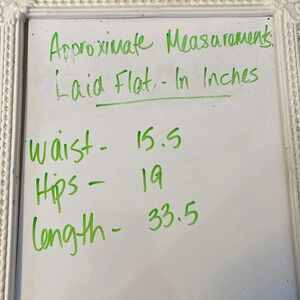 Approximate Measurements
Laid Flat - In Inches
Waist - 15.5
Hips - 19
length - 33.5